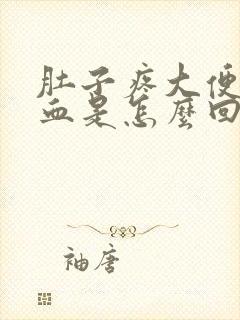 肚子疼大便
血是怎麼回
袖唐